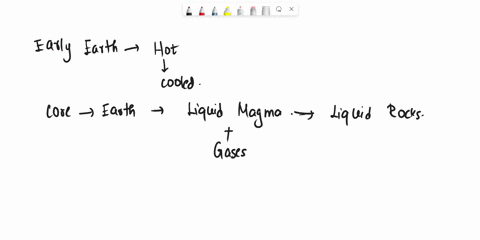 Early Earth → Hot
↓
cooled.
Core → Earth → Liquid Magma → Liquid Rocks.
+
Gases